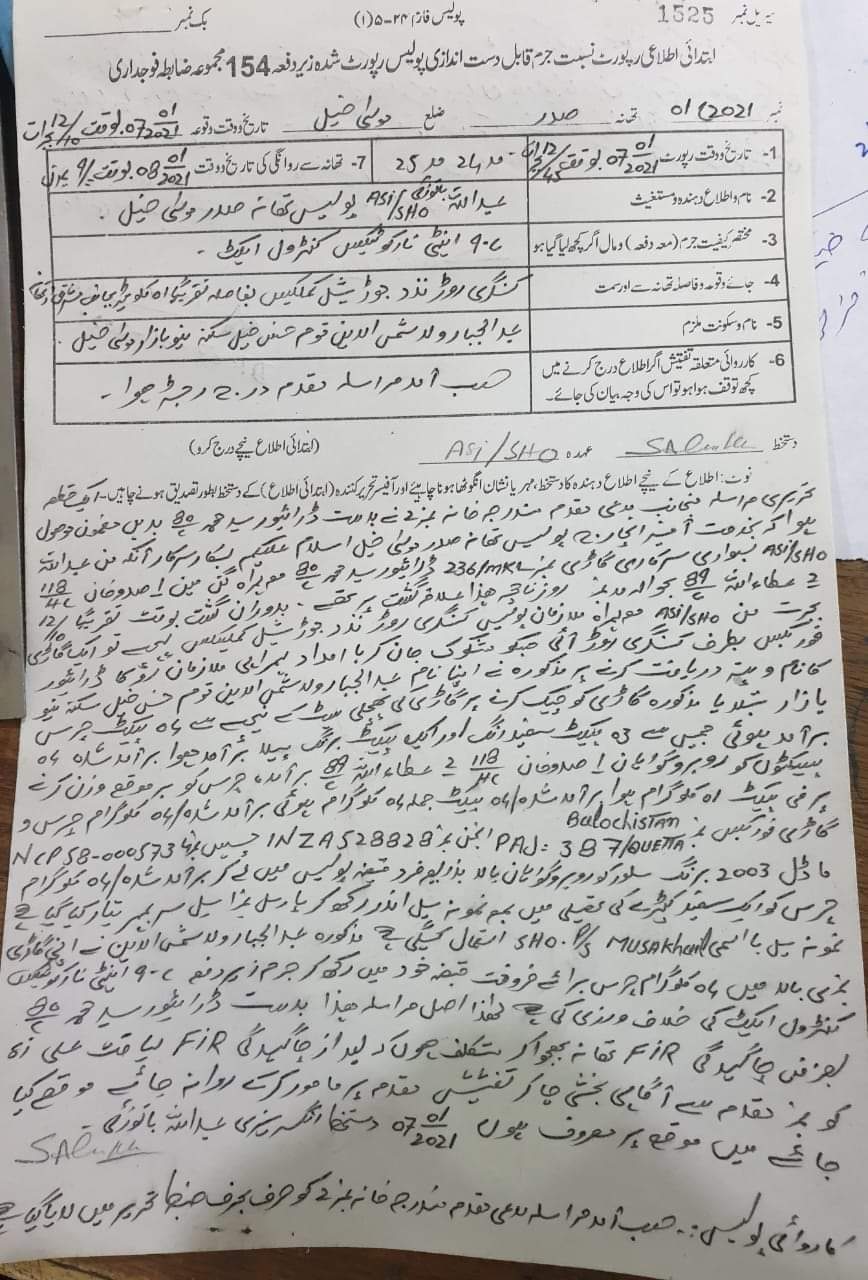 سیریل نمبر 1525 پولیس فارم ۲۴-۵(۱) بک نمبر
ابتدائی اطلاعی رپورٹ نسبت جرم قابل دست اندازی پولیس رپورٹ شدہ زیر دفعہ 154 مجموعہ ضابطہ فوجداری
نمبر 01/2021 تھانہ صدر ضلع موسیٰ خیل تاریخ و وقت وقوعہ 07-01-2021 بوقت 12/10 بجے رات
1- تاریخ و وقت رپورٹ 07-01-2021 بوقت 12/45 مد 24 مد 25 7- تھانہ سے روانگی کی تاریخ و وقت 08-01-2021 بوقت 9/
2- نام و اطلاع دہندہ و مستغیث عبداللہ ASI/SHO پولیس تھانہ صدر موسیٰ خیل ۔
3- مختصر کیفیت جرم (معہ دفعہ) و مال اگر کچھ لیا گیا ہو 9-C اینٹی نارکوٹیکس کنٹرول ایکٹ ۔
4- جائے وقوعہ و فاصلہ تھانہ سے اور سمت کنگری روڈ نزد جوڈیشل کمپلیکس بفاصلہ تقریباً 01 کلومیٹر بجانب مشرق از تھانہ
5- نام و سکونت ملزم عبدالجبار ولد شمس الدین قوم حسن خیل سکنہ نیو بازار موسیٰ خیل ۔
6- کارروائی متعلقہ تفتیش اگر اطلاع درج کرنے میں کچھ توقف ہوا ہو تو اس کی وجہ بیان کی جائے۔ حسب آمد مراسلہ مقدم درج رجسٹر ہوا ۔
دستخط عہدہ ASI/SHO (ابتدائی اطلاع نیچے درج کرو)
نوٹ: اطلاع کے نیچے اطلاع دہندہ کا دستخط، مہر یا نشان انگوٹھا ہونا چاہیئے اور آفیسر تحریر کنندہ (ابتدائی اطلاع) کے دستخط بطور تصدیق ہونے چاہیں۔ ایک قطعہ
تحریری مراسلہ منجانب مدعی مقدم مندرجہ خانہ نمبر 2 نے بدست ڈرائیور سید محمد 80/C بدیں مضمون موصول
ہوا کہ بخدمت آفیسر انچارج پولیس تھانہ صدر موسیٰ خیل اسلام علیکم بکار سرکار آنکہ من عبداللہ
ASI/SHO بسواری سرکاری گاڑی نمبر 236/MKL ڈرائیور سید محمد 80/C ہمراہ گن مین 1 صدو خان 118/HC
2 عطاء اللہ 89/C بحوالہ مد نمبر روزنامچہ ھذا علاقہ گشت پر تھے ۔ بدوران گشت بوقت تقریباً 12/10
بجے رات من ASI/SHO ہمراہ ملازمان پولیس کنگری روڈ نزد جوڈیشل کمپلیکس پہنچے تو ایک گاڑی
فورٹیکس بطرف کنگری روڈ آئی جسکو مشکوک جان کر با امداد ہمراہی ملازمان روکا ڈرائیور
کا نام و پتہ دریافت کرنے پر مذکورہ نے اپنا نام عبدالجبار ولد شمس الدین قوم حسن خیل سکنہ نیو
بازار بتلایا مذکورہ گاڑی کو چیک کرنے پر گاڑی کی پچھلی سیٹ کے نیچے سے 04 پیکٹ چرس
برآمد ہوئی جسمیں سے 03 پیکٹ سفید رنگ اور ایک پیکٹ برنگ پیلا برآمد ہوا برآمد شدہ 04
پیکٹوں کو روبرو گواہان 1 صدو خان 118/HC 2 عطاء اللہ 89/C برآمدہ چرس کو بر موقع وزن کرنے
پر فی پیکٹ 01 کلوگرام ہوا برآمد شدہ 04 پیکٹ جملہ 04 کلوگرام ہوئی برآمد شدہ 04 کلوگرام چرس و
گاڑی فورٹیکس نمبر PAJ-387/QUETTA Balochistan انجن نمبر INZA528828 چیسس نمبر NCP58-0005734
ماڈل 2003 برنگ سلور کو روبرو گواہان بالا بذریعہ فرد قبضہ پولیس میں لے کر برآمد شدہ 04 کلوگرام
چرس کو ایک سفید کپڑے کی تھیلی میں بمعہ نمونہ سیل اندر رکھ کر پارسل نمبر 1 سیل سر بمہر تیار کیا گیا ہے
نمونہ سیل با اسمی SHO. P/S MUSAKhail استعمال کیگئی ہے مذکورہ عبدالجبار ولد شمس الدین نے اپنی گاڑی
نمبری بالا میں 04 کلوگرام چرس برائے فروخت قبضہ خود میں رکھ کر جرم زیر دفعہ 9-C اینٹی نارکوٹیکس
کنٹرول ایکٹ کی خلاف ورزی کی ہے لھذا اصل مراسلہ ھذا بدست ڈرائیور سید محمد 80/C
بغرض چاکیدگی FIR تھانہ بھجوا کر متکلف ہوں کہ بعد از چاکیدگی FIR لیاقت علی
کو نمبر مقدم سے آگاہی بخشی جا کر تفتیش مقدم پر مامور کرکے روانہ جائے موقع کیا
جائے میں موقع پر مصروف ہوں 07-01-2021 دستخط انگریزی عبداللہ
کاروائی پولیس :۔ حسب آمد مراسلہ مدعی مقدم مندرجہ خانہ نمبر 2 کو حرف بحرف ضبط تحریر میں لایا گیا ہے